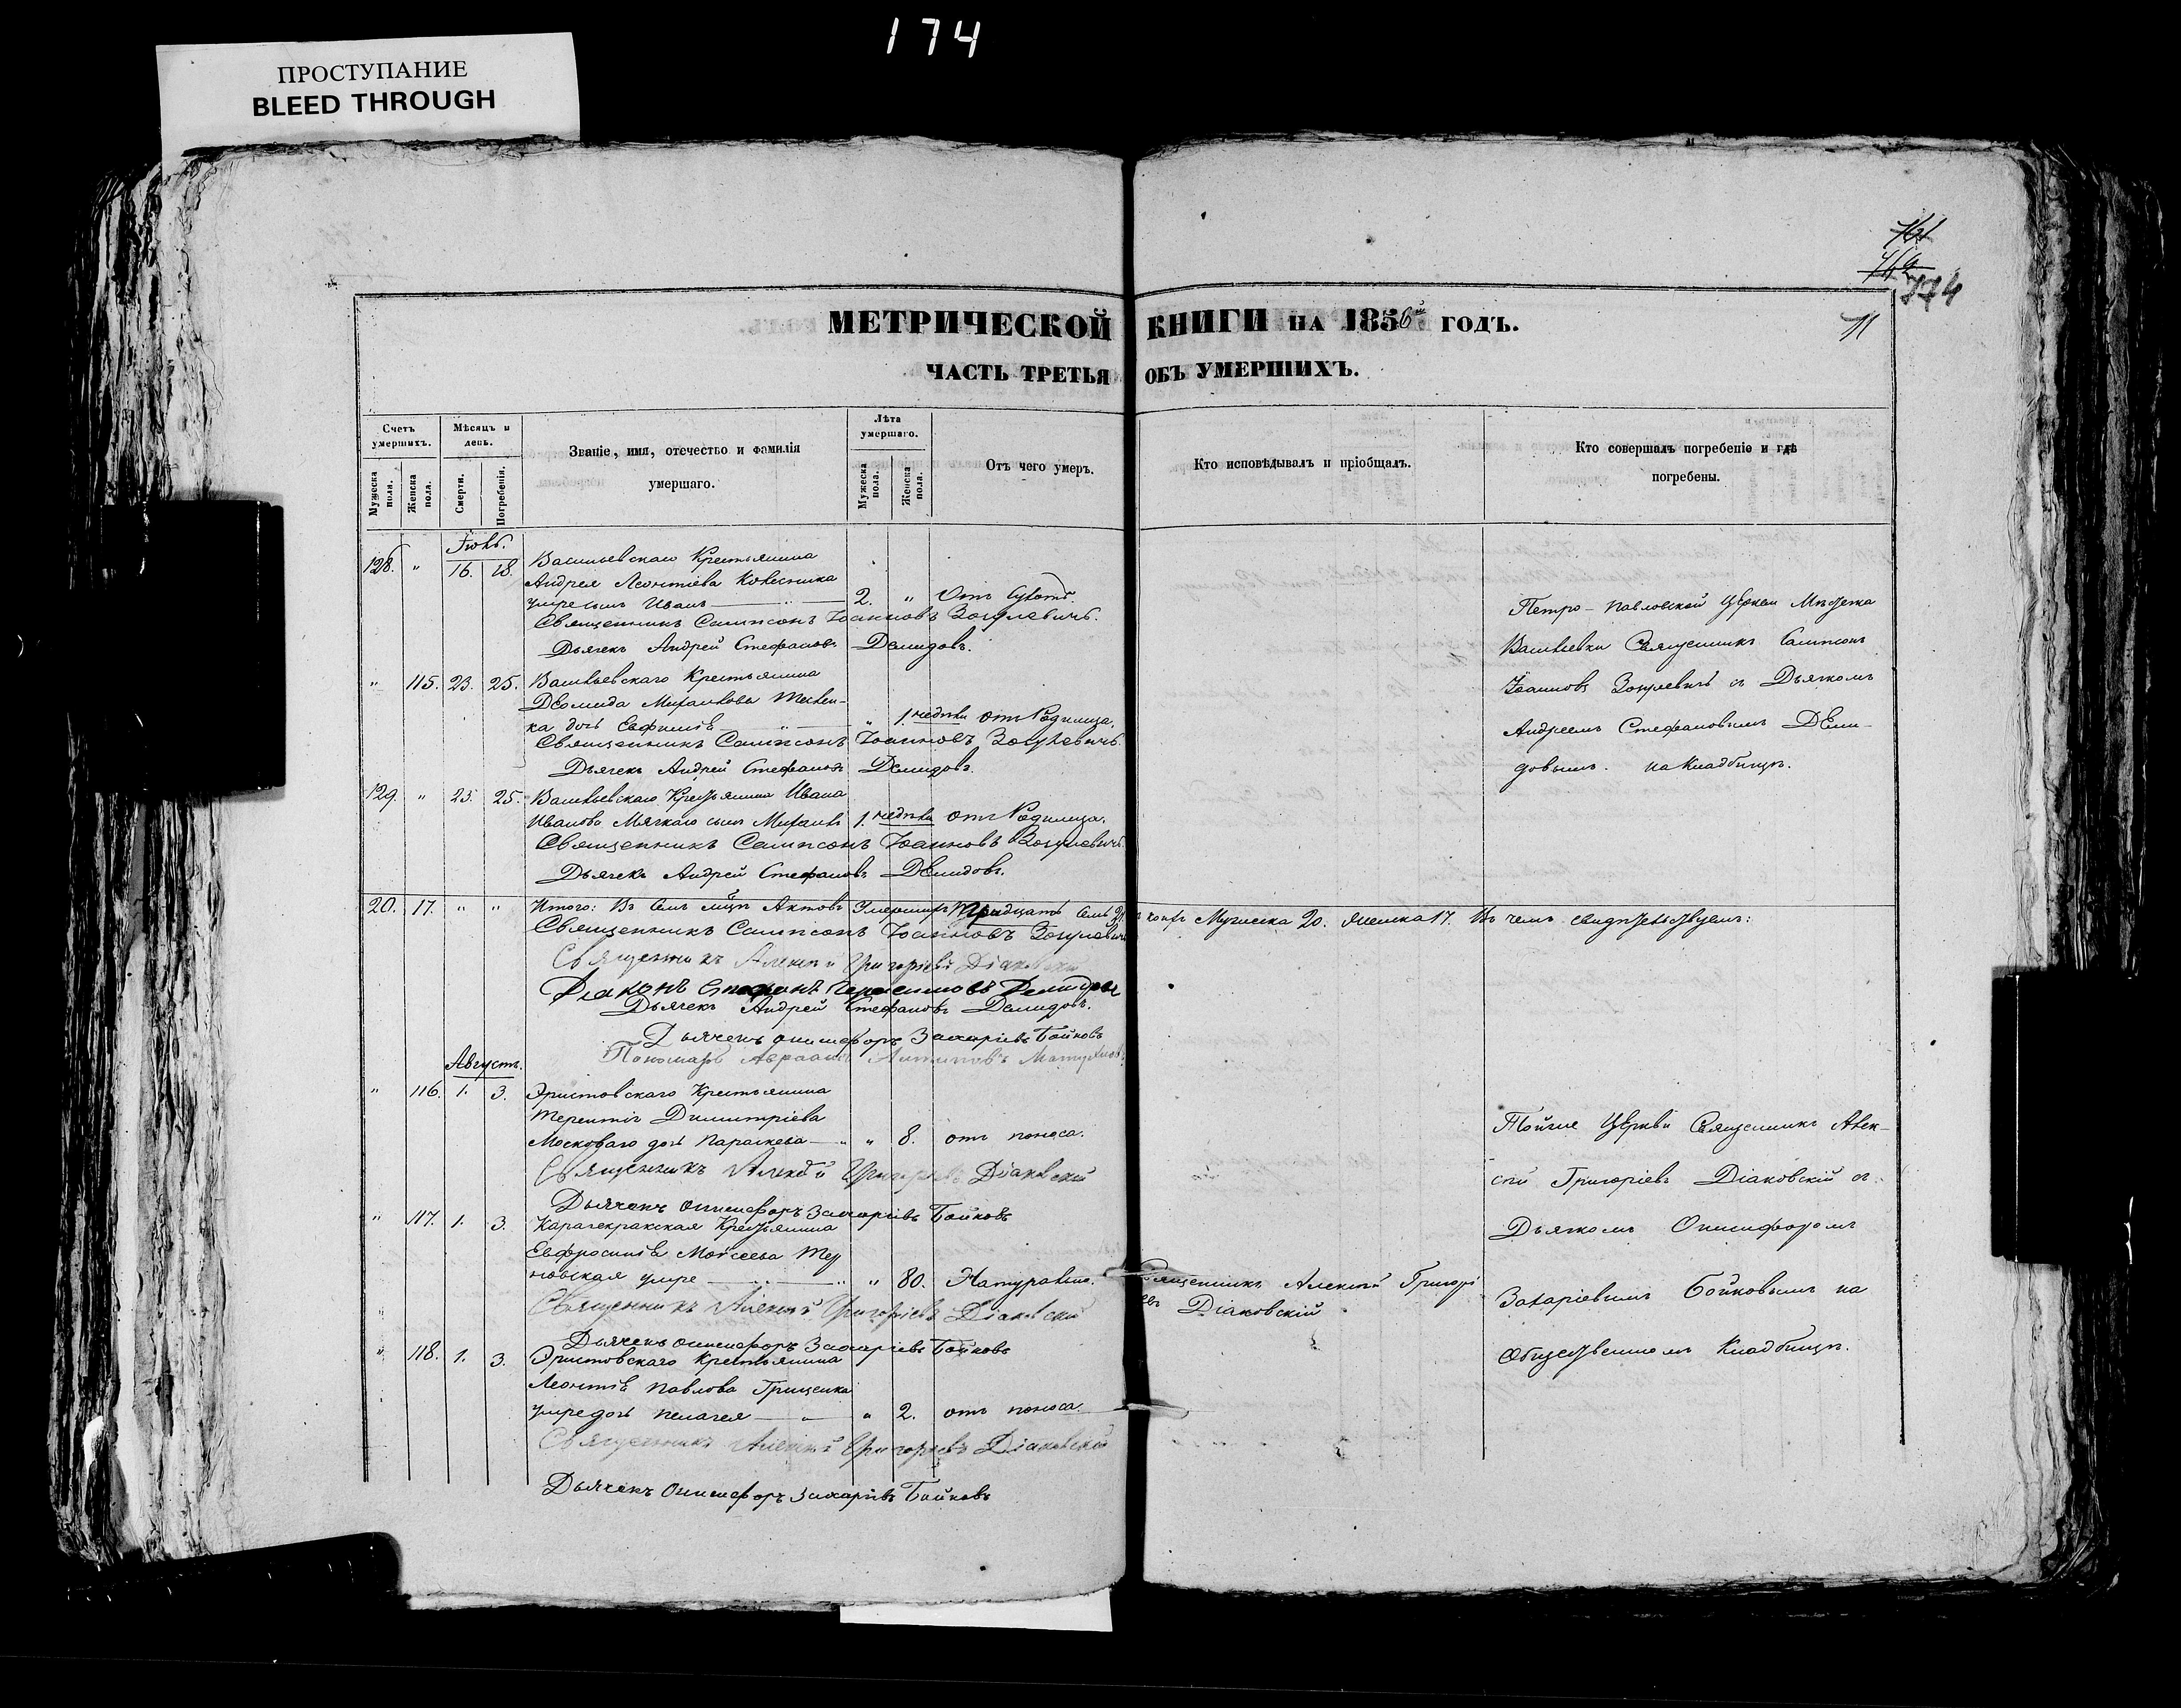 174
ПРОСТУПАНИЕ
BLEED THROUGH
174
11
МЕТРИЧЕСКОЙ КНИГИ НА 1856й ГОДЪ.
ЧАСТЬ ТРЕТЬЯ ОБЪ УМЕРШИХЪ.
Счетъ умершихъ.
Мужеска пола.
Женска пола.
Мѣсяцъ и день.
Смерти.
Погребенія.
Званіе, имя, отечество и фамилія
умершаго.
Лѣта умершаго.
Мужеска пола.
Женска пола.
Отъ чего умеръ.
Кто исповѣдывалъ и пріобщалъ.
Кто совершалъ погребеніе и гдѣ
погребены.
128. " 16. 18. Васильевскаго Крестьянина
Андрея Леонтіева Колесника
умре сынъ Иванъ 2. " Отъ
Священникъ Сампсонъ Іоанновъ Зогулевичъ.
Дьячекъ Андрей Стефановъ Демидовъ.
" 115. 23. 25. Васильевскаго Крестьянина
Діомида Михайлова
дочь Евфимія " 1. недѣли отъ Родимца.
Священникъ Сампсонъ Іоанновъ Зогулевичъ.
Дьячекъ Андрей Стефановъ Демидовъ.
129. " 23. 25. Васильевскаго Крестьянина Ивана
Иванова Мягкаго сынъ Михаилъ 1. недѣли отъ Родимца.
Священникъ Сампсонъ Іоанновъ Зогулевичъ.
Дьячекъ Андрей Стефановъ Демидовъ.
Петро-Павловской Церкви Мѣстечка
Васильевки Священникъ Сампсонъ
Іоанновъ Зогулевичъ съ Дьячкомъ
Андреемъ Стефановымъ Деми-
довымъ. на Кладбищѣ.
20. 17. " " Итого: Въ Семъ Актовъ Умершихъ Тридцать Семь Мужеска 20. Женска 17. Въ чемъ свидѣтельствуемъ:
Священникъ Сампсонъ Іоанновъ Зогулевичъ
Священникъ Алексій Григоріевъ Діаковскій
Діаконъ Стефанъ Герасимовъ
Дьячекъ Андрей Стефановъ Демидовъ.
Дьячекъ Онисифоръ Захаріевъ Бойковъ
Пономарь Авраамъ
Августъ.
" 116. 1. 3. Эристовскаго Крестьянина
Терентія Димитріева
Московаго дочь Параскева " 8. отъ поноса.
Священникъ Алексій Григоріевъ Діаковскій
Дьячекъ Онисифоръ Захаріевъ Бойковъ
" 117. 1. 3. Карачекракская Крестьянина
Евфросинія Моѵсеева
умре " 80. Натурально. Священникъ Алексій Григорі
евъ Діаковскій
Священникъ Алексій Григоріевъ Діаковскій
Дьячекъ Онисифоръ Захаріевъ Бойковъ
" 118. 1. 3. Эристовскаго Крестьянина
Леонтія Павлова Грищенка
умре дочь Пелагея " 2. отъ поноса.
Священникъ Алексій Григоріевъ Діаковскій
Дьячекъ Онисифоръ Захаріевъ Бойковъ
Тойже Церкви Священникъ Алек-
сій Григоріевъ Діаковскій съ
Дьячкомъ Онисифоромъ
Захаріевымъ Бойковымъ на
Общественномъ Кладбищѣ.